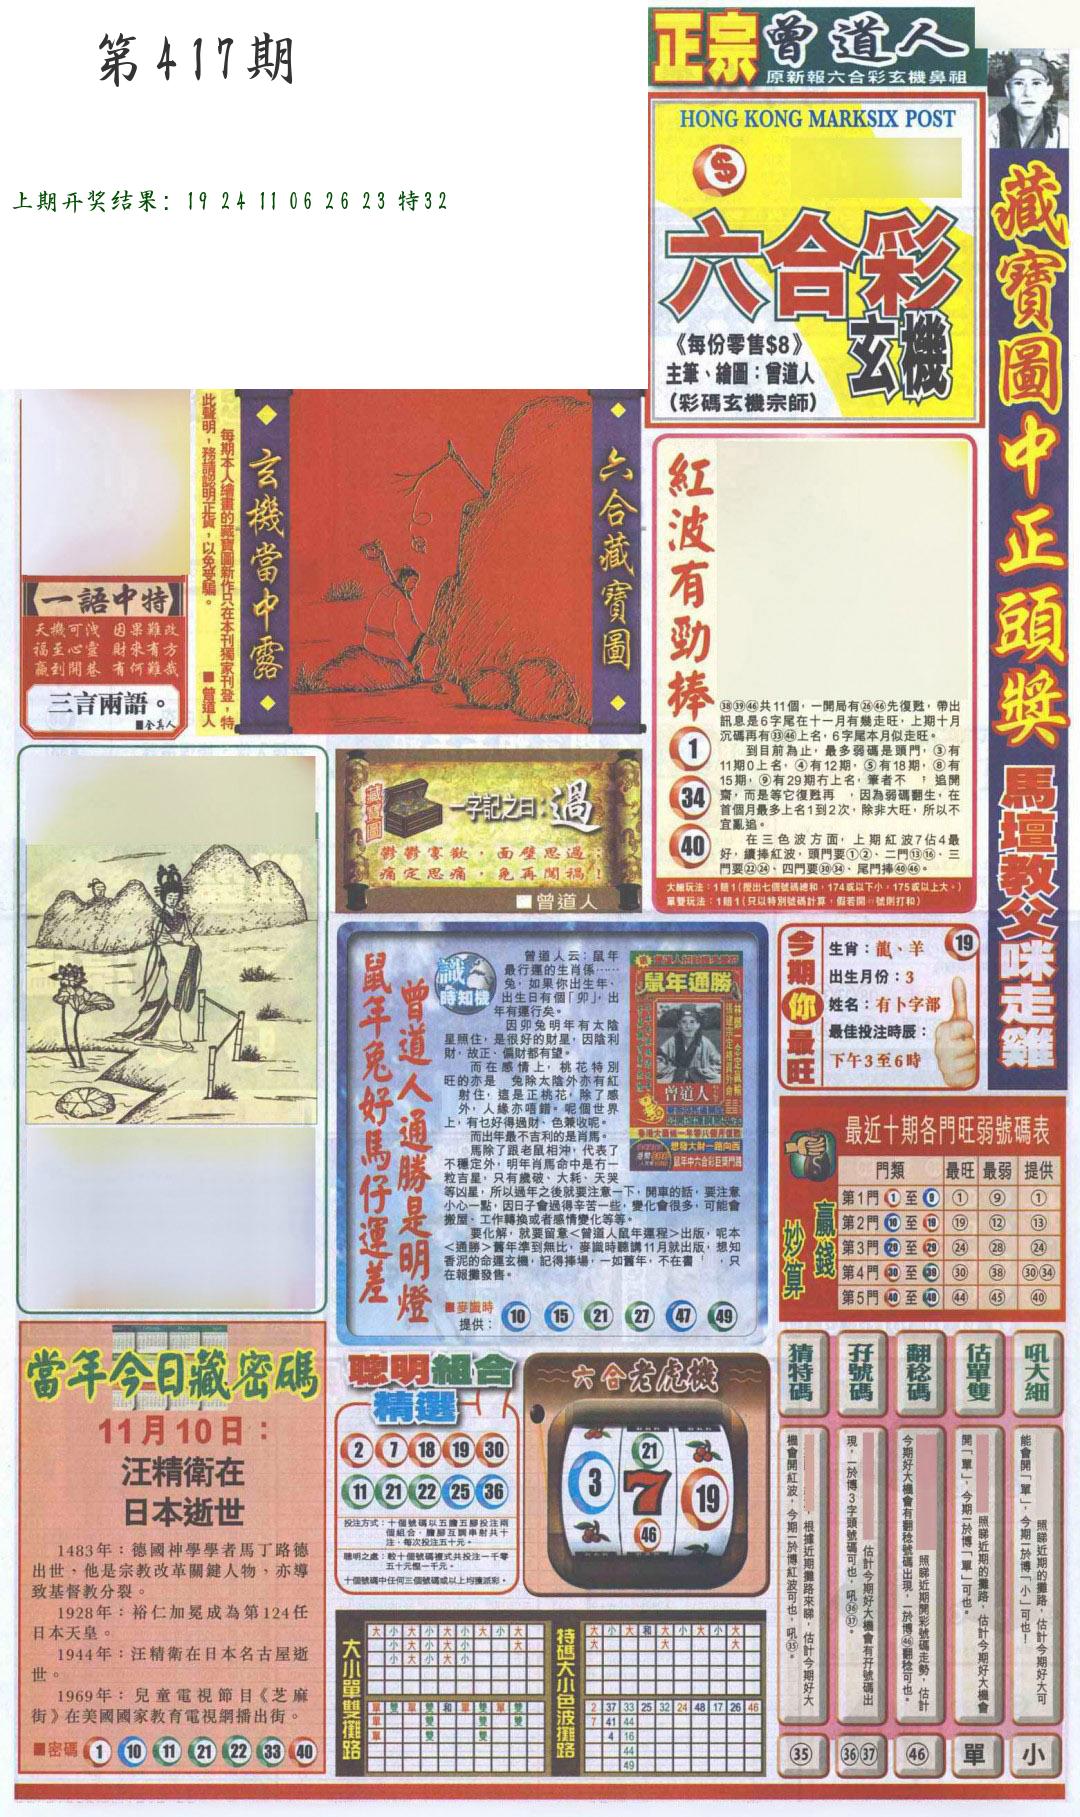 第417期
上期开奖结果: 19 24 11 06 26 23 特32
正宗曾道人
原新報六合彩玄機鼻祖
HONG KONG MARKSIX POST
$
六合彩
玄機
《每份零售$8》
主筆、繪圖：曾道人
（彩碼玄機宗師）
藏寶圖中正頭獎
馬壇教父咪走雞
一語中特
天機可洩 因果難改
福至心靈 財來有方
贏到開巷 有何難哉
三言兩語。
■金真人
每期本人繪畫的藏寶圖新作只在本刊獨家刊登，特
此聲明，務請認明正貨，以免受騙。
■曾道人
玄機當中露
六合藏寶圖
紅波有勁棒
1
34
40
㊳㊴㊻共11個，一開局有㉖㊻先復甦，帶出
訊息是6字尾在十一月有幾走旺，上期十月
沉碼再有㉝㊻上名，6字尾本月似走旺。
到目前為止，最多弱碼是頭門，③有
11期0上名，④有12期，⑤有18期，⑧有
15期，⑨有29期冇上名，筆者不 ；追開
齋，而是等它復甦再 ，因為弱碼翻生，在
首個月最多上名1到2次，除非大旺，所以不
宜亂追。
在三色波方面，上期紅波7佔4最
好，續捧紅波，頭門要①②、二門⑬⑯、三
門要㉒㉔、四門要㉚㉞、尾門捧㊵㊻。
大細玩法：1賠1（攪出七個號碼總和，174或以下小，175或以上大。）
單雙玩法：1賠1（只以特別號碼計算，假若開 號則打和）
藏寶圖
一字記之曰：過
鬱鬱寡歡，面壁思過；
痛定思痛，免再闖禍！
■曾道人
鼠年兔好馬仔運差
曾道人通勝是明燈
識時知機
曾道人云：鼠年
最行運的生肖係……
兔，如果你出生年、
出生日有個「卯」，出
年有運行矣。
因卯兔明年有太陰
星照住，是很好的財星，因陰利
財，故正、偏財都有望。
而在感情上，桃花特別
旺的亦是 兔除太陰外亦有紅
射住，這是正桃花，除了感
外，人緣亦唔錯。呢個世界
上，有乜好得過財、色兼收呢。
而出年最不吉利的是肖馬。
馬除了跟老鼠相沖，代表了
不穩定外，明年肖馬命中是冇一
粒吉星，只有歲破、大耗、天哭
等凶星，所以過年之後就要注意一下，開車的話，要注意
小心一點，因日子會過得辛苦一些，變化會很多，可能會
搬屋、工作轉換或者感情變化等等。
要化解，就要留意<曾道人鼠年運程>出版，呢本
<通勝>舊年準到無比，麥識時聽講11月就出版，想知
香泥的命運玄機，記得捧場，一如舊年，不在書 ，只
在報攤發售。
鼠年通勝
曾道人
想發大財一路向西
■麥識時
提供： 10 15 21 27 47 49
今期你最旺
19
生肖：龍、羊
出生月份：3
姓名：有卜字部
最佳投注時辰：
下午3至6時
最近十期各門旺弱號碼表
贏錢妙算
門類 最旺 最弱 提供
第1門 1 至 9 ① ⑨ ①
第2門 10 至 19 ⑲ ⑫ ⑬
第3門 20 至 29 ㉔ ㉘ ㉔
第4門 30 至 39 ㉚ ㊳ ㉚㉞
第5門 40 至 49 ㊹ ㊺ ㊵
當年今日藏密碼
11月10日：
汪精衛在
日本逝世
1483年：德國神學學者馬丁路德
出世，他是宗教改革關鍵人物，亦導
致基督教分裂。
1928年：裕仁加冕成為第124任
日本天皇。
1944年：汪精衛在日本名古屋逝
世。
1969年：兒童電視節目《芝麻
街》在美國國家教育電視網播出街。
■密碼 1 10 11 21 22 33 40
聰明組合
精選
2 7 18 19 30
11 21 22 25 36
投注方式：十個號碼以五膽五腳投注兩
個組合，膽腳互調串射共十
注，每次投注五十元。
聰明之處：較十個號碼複式共投注一千零
五十元慳一千元。
十個號碼中任何三個號碼或以上均獲派彩。
六合老虎機
3 21 7 46 19
大小單雙攤路
大 小 大 小 大 小 大 小 大
小 大 小 大 小 大
單 雙 雙 和 單 雙 單 雙
特碼大小色波攤路
大 小 大 和 大 小 大 小 大
2 37 33 25 32 24 48 17 26 46
7 41 44
4 16
44
49
猜特碼
根據近期攤路來睇，估計今期好大
機會開紅波，今期一於博紅波可也，吼㉟。
㉟
孖號碼
估計今期好大機會有孖號碼出
現，一於博3字頭號碼可也，吼㊱㊲。
㊱㊲
翻稔碼
照睇近期開彩號碼走勢，估計
今期好大機會有翻稔號碼出現，一於博㊻翻稔可也。
㊻
估單雙
照睇近期的攤路，估計今期好大機會
開「單」，今期一於博「單」可也。
單
吼大細
照睇近期的攤路，估計今期好大可
能會開「單」，今期一於博「小」可也！
小